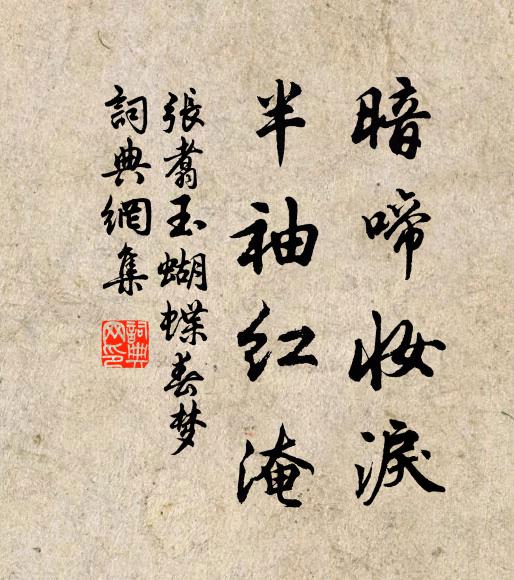 暗啼妝淚
半袖紅淹
張翥玉蝴蝶春梦
詞典網集
詞典网印